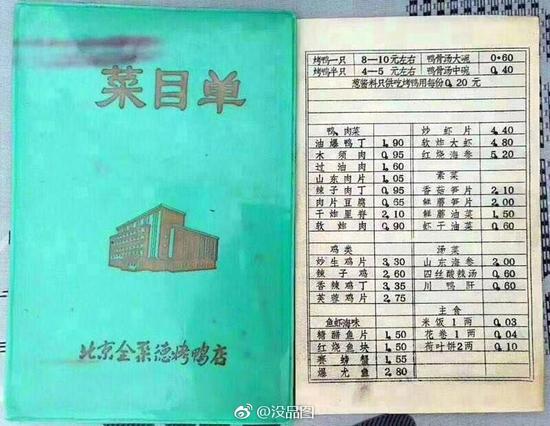 菜目单
北京全聚德烤鸭店
烤鸭一只 8—10元左右 鸭骨汤大碗 0.60
烤鸭半只 4—5元左右 鸭骨汤中碗 0.40
葱酱料只供吃烤鸭用每份0.20元
鸭、肉菜
油爆鸭丁 1.90
木须肉 0.95
过油肉 1.60
山东肉片 1.05
辣子肉丁 0.95
肉片豆腐 0.65
干炸里脊 2.10
软炸肉 0.90
鸡类
炒生鸡片 3.30
辣子鸡 2.60
香辣鸡丁 3.35
芙蓉鸡片 2.75
鱼虾海味
糖醋鱼片 1.50
红烧鱼块 1.50
赛螃蟹 1.55
爆尤鱼 2.80
炒虾片 4.40
软炸大虾 4.80
红烧海参 5.20
素菜
香菇笋片 2.10
鲜蘑笋片 2.00
鲜蘑油菜 1.50
虾干油菜 0.60
汤菜
山东海参 2.00
四丝酸辣汤 0.60
川鸭肝 0.60
主食
米饭1两 0.03
花卷1两 0.04
荷叶饼2两 0.10
@没品图